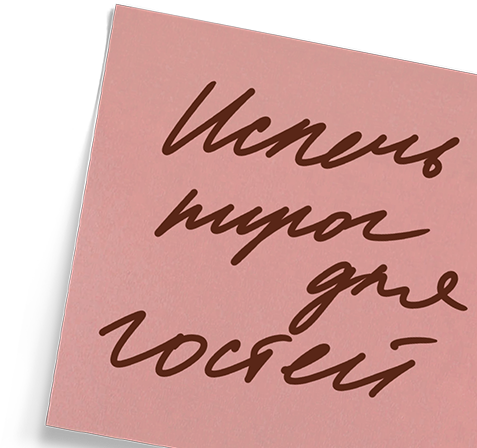 Испечь
пирог
для
гостей